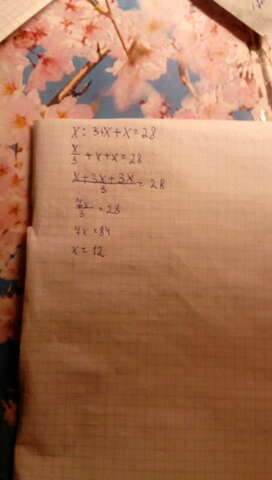 x : 3+x+x=28
x/3 + x+x=28
x+3x+3x/3 = 28
7x/3 = 28
7x=84
x=12